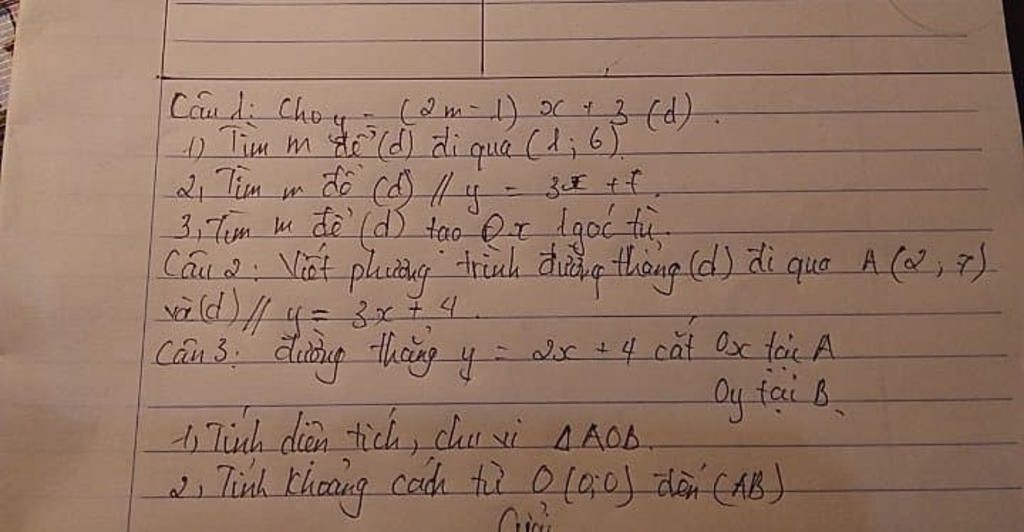 Câu 1: Cho y = (2m - 1) x + 3 (d).
1) Tìm m để (d) đi qua (1; 6)
2, Tìm m để (d) // y = 3x + 7.
3, Tìm m để (d) tạo Ox 1 góc tù.
Câu 2: Viết phương trình đường thẳng (d) đi qua A (2; 7)
và (d) // y = 3x + 4.
Câu 3: đường thẳng y = 2x + 4 cắt Ox tại A
Oy tại B.
1, Tính diện tích, chu vi Δ AOB.
2, Tính khoảng cách từ O (0; 0) đến (AB)
Giải